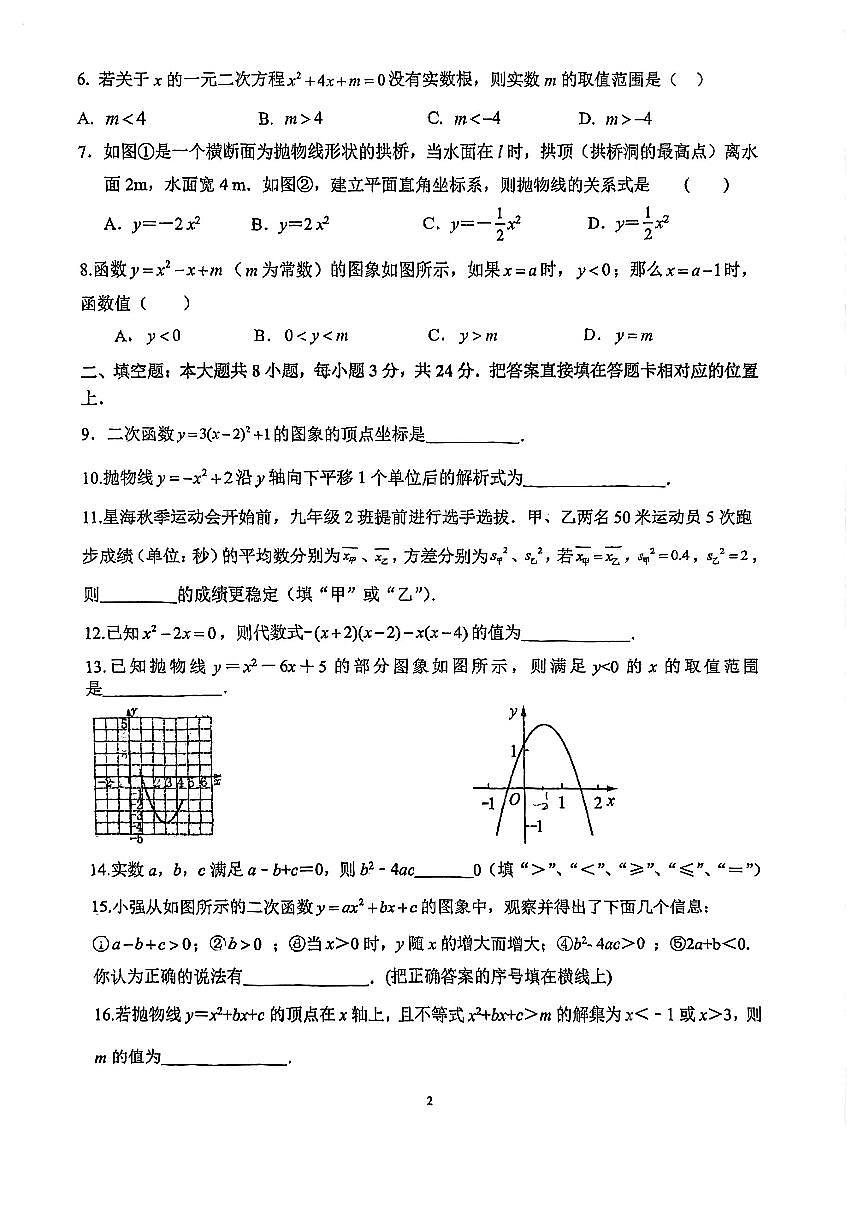 6. 若关于 x 的一元二次方程 x²+4x+m=0 没有实数根，则实数 m 的取值范围是（  ）
A. m<4 B. m>4 C. m<-4 D. m>-4
7. 如图①是一个横断面为抛物线形状的拱桥，当水面在 l 时，拱顶（拱桥洞的最高点）离水
面 2m，水面宽 4 m．如图②，建立平面直角坐标系，则抛物线的关系式是 （  ）
A. y=-2x² B. y=2x² C. y=-1/2x² D. y=1/2x²
8.函数 y=x²-x+m（m 为常数）的图象如图所示，如果 x=a 时，y<0；那么 x=a-1 时，
函数值（  ）
A. y<0 B. 0<y<m C. y>m D. y=m
二、填空题：本大题共 8 小题，每小题 3 分，共 24 分．把答案直接填在答题卡相对应的位置
上．
9. 二次函数 y=3(x-2)²+1 的图象的顶点坐标是________．
10.抛物线 y=-x²+2 沿 y 轴向下平移 1 个单位后的解析式为________．
11.星海秋季运动会开始前，九年级 2 班提前进行选手选拔．甲、乙两名 50 米运动员 5 次跑
步成绩（单位：秒）的平均数分别为 x甲、x乙，方差分别为 s甲²、s乙²，若 x甲=x乙，s甲²=0.4，s乙²=2，
则________的成绩更稳定（填“甲”或“乙”）．
12.已知 x²-2x=0，则代数式-(x+2)(x-2)-x(x-4) 的值为________．
13.已知抛物线 y=x²-6x+5 的部分图象如图所示，则满足 y<0 的 x 的取值范围
是________．
y
5
-2 1 2 3 4 5 6
-1
-2
-3
-4
y
1
-1 O 1 2 x
-1
14.实数 a，b，c 满足 a-b+c=0，则 b²-4ac______0（填“>”、“<”、“≥”、“≤”、“=”）
15.小强从如图所示的二次函数 y=ax²+bx+c 的图象中，观察并得出了下面几个信息：
①a-b+c>0；②b>0 ；③当 x>0 时，y 随 x 的增大而增大；④b²-4ac>0 ；⑤2a+b<0.
你认为正确的说法有________．(把正确答案的序号填在横线上)
16.若抛物线 y=x²+bx+c 的顶点在 x 轴上，且不等式 x²+bx+c>m 的解集为 x<-1 或 x>3，则
m 的值为________．
2